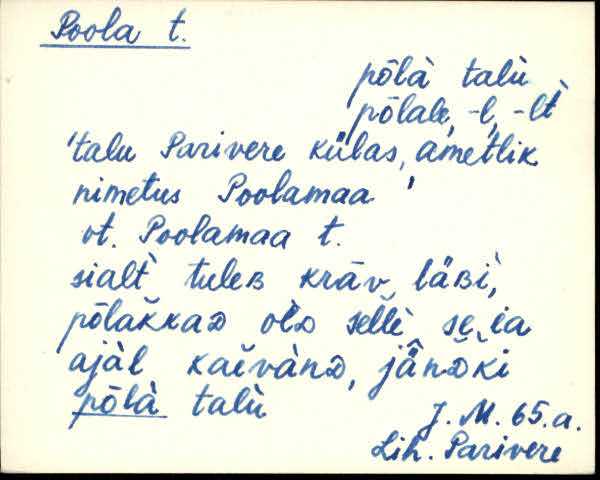 Poola t.
pōlà talù
pōlale, -l, -lt̀
'talu Parivere külas, ametlik
nimetus Poolamaa'
vt. Poolamaa t.
sialt̀ tuleʙ krāv läʙì,
pōlak̆kaᴅ olᴅ sellè se̬ia
ajàl kaĭvànᴅ, jän̆ᴅki
pōlà talù
J. M. 65. a.
Lih. Parivere